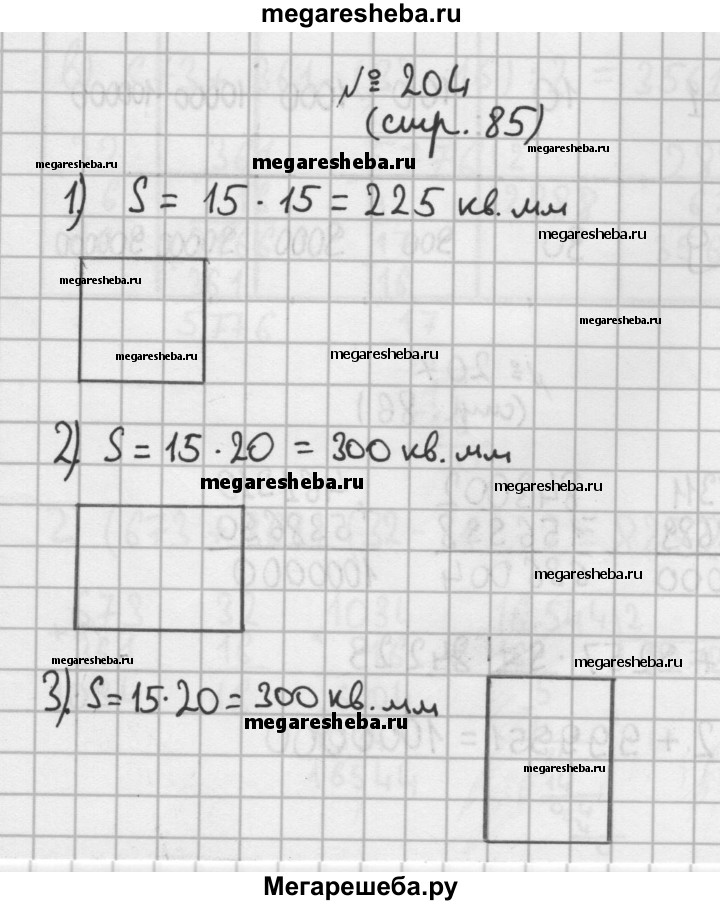 megaresheba.ru
№ 204
(стр. 85)
megaresheba.ru
megaresheba.ru
megaresheba.ru
1) S = 15 · 15 = 225 кв. мм
megaresheba.ru
megaresheba.ru
megaresheba.ru
megaresheba.ru
megaresheba.ru
2) S = 15 · 20 = 300 кв. мм
megaresheba.ru
megaresheba.ru
megaresheba.ru
megaresheba.ru
megaresheba.ru
3). S = 15 · 20 = 300 кв. мм
megaresheba.ru
megaresheba.ru
Мегарешеба.ру